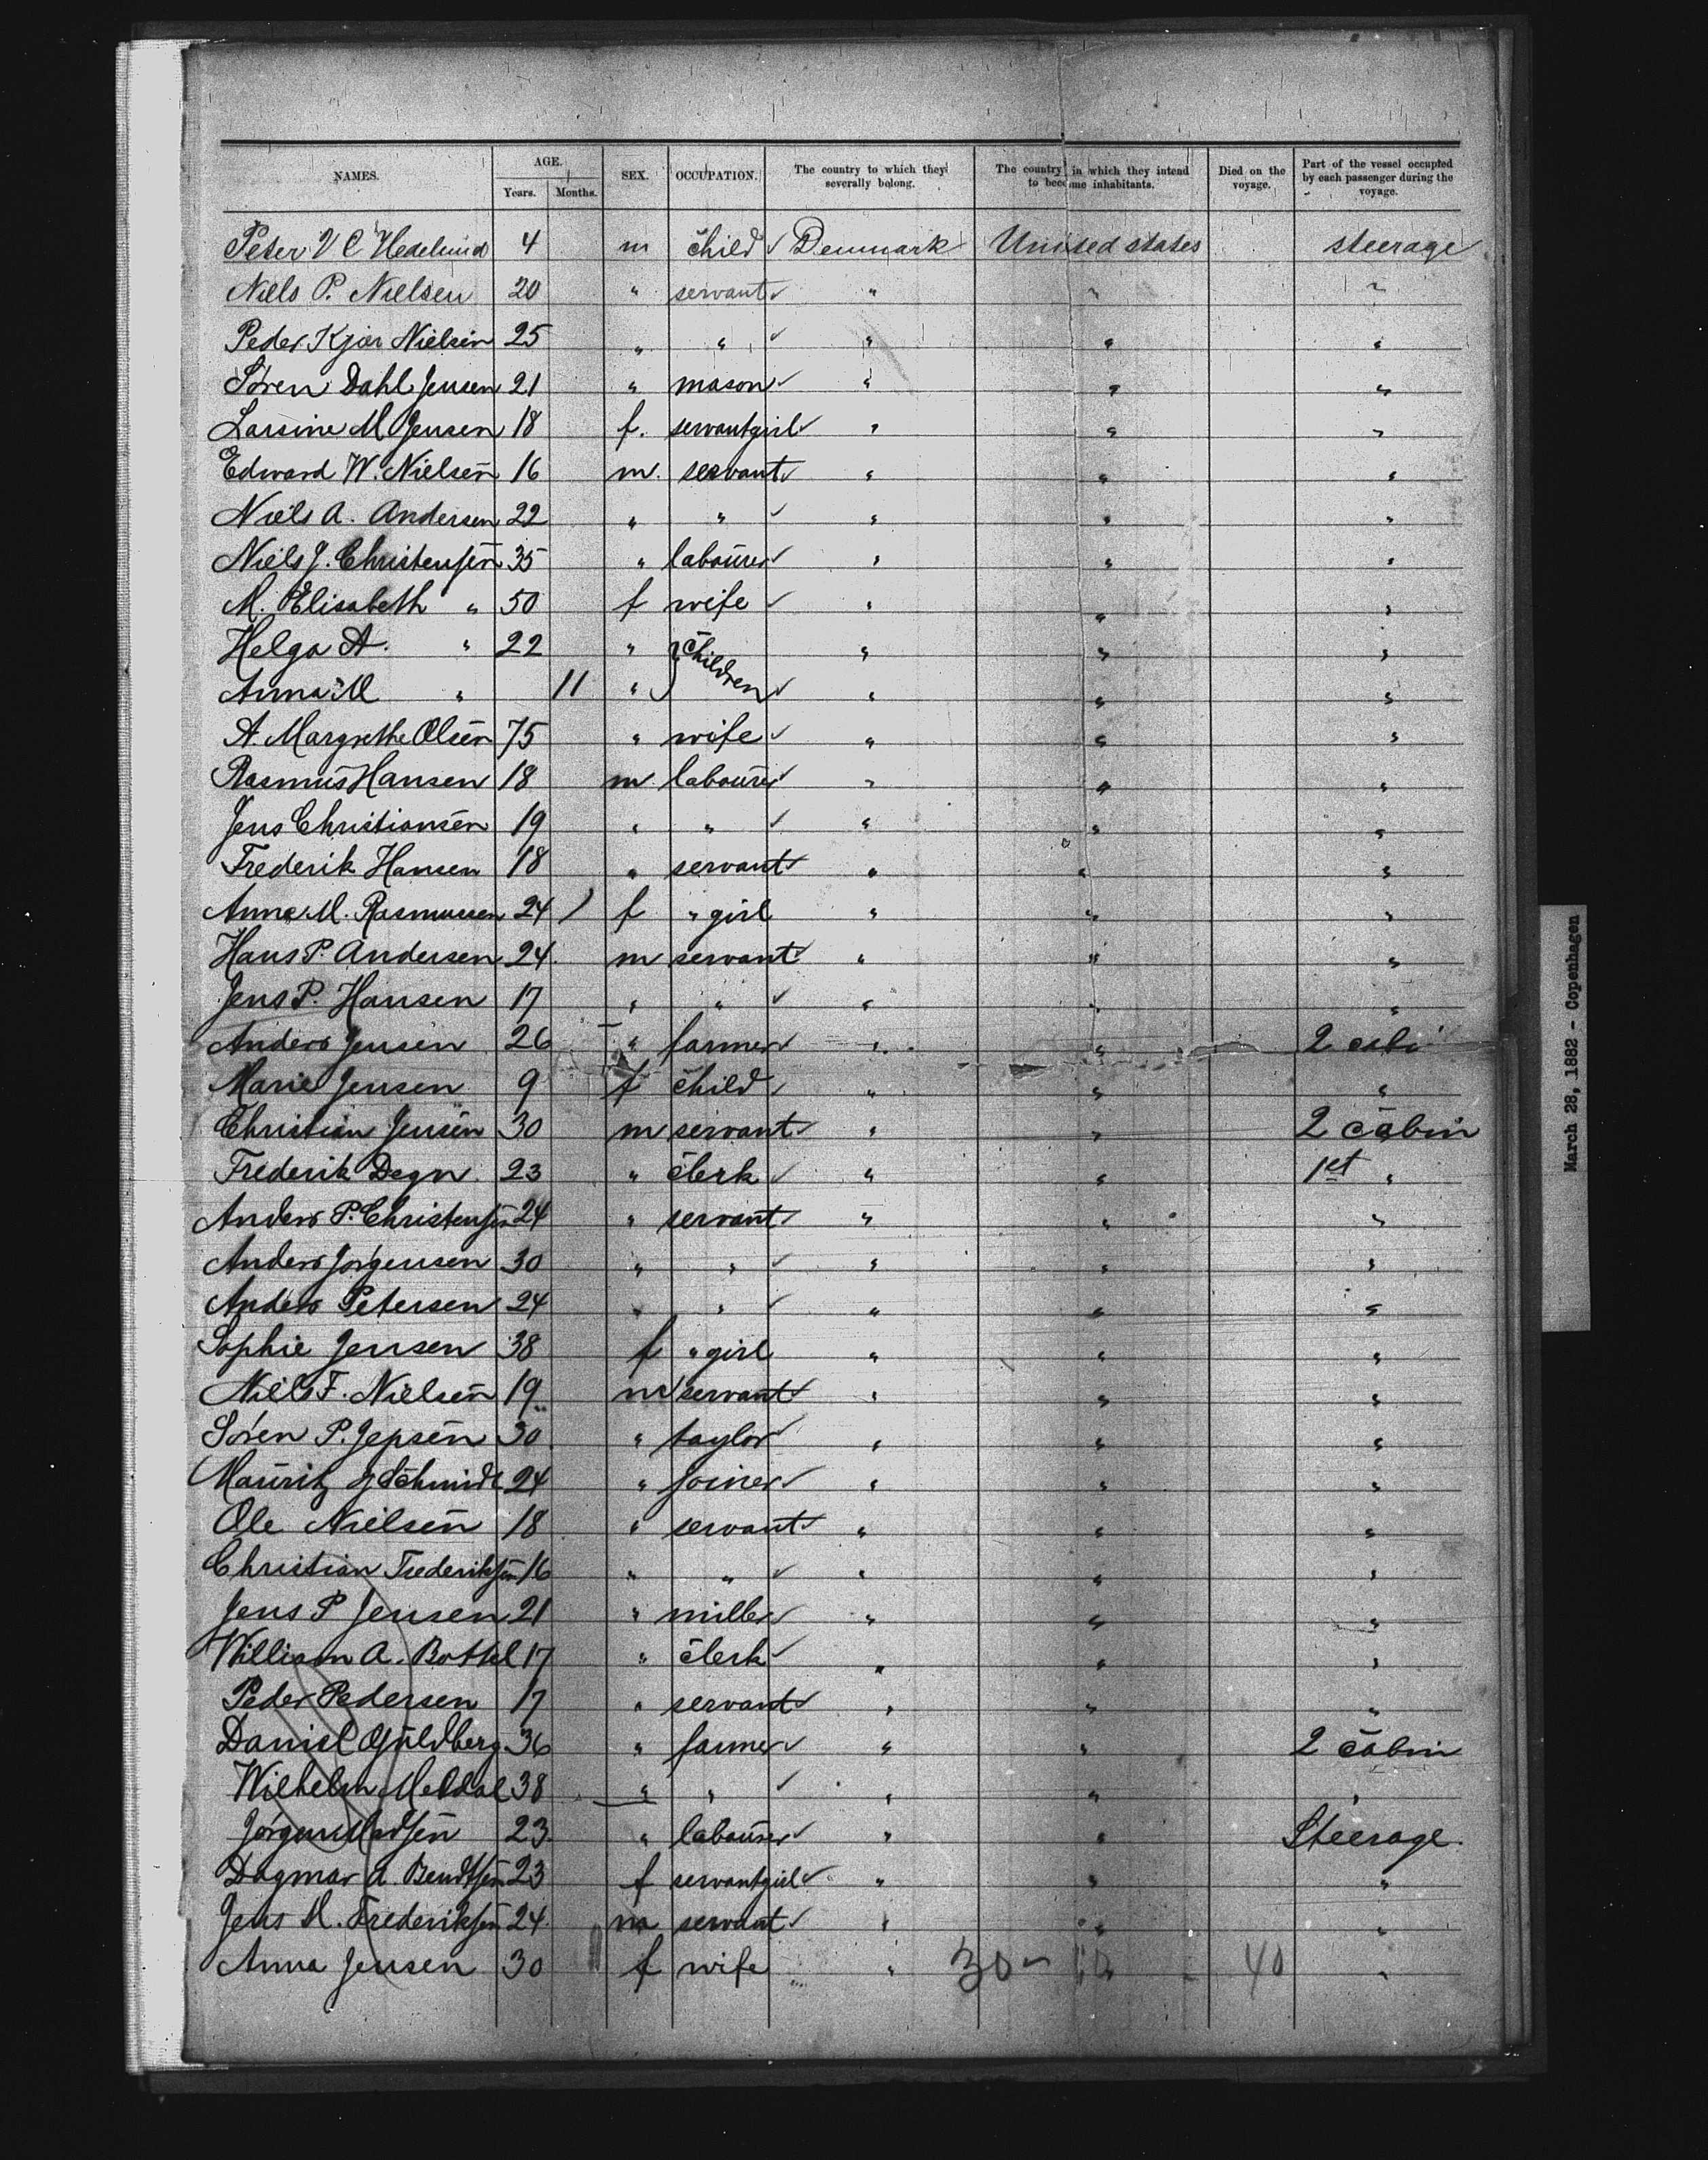 NAMES. AGE. Years. Months. SEX. OCCUPATION. The country to which they severally belong. The country in which they intend to become inhabitants. Died on the voyage. Part of the vessel occupied by each passenger during the voyage.
Peter V C Hedelund 4 m child ✓ Denmark United states steerage
Niels P. Nielsen 20 " servant ✓ " " "
Peder Kjær Nielsen 25 " " ✓ " " "
Sören Dahl Jensen 21 " mason ✓ " " "
Larsine M Jensen 18 f. servantgirl ✓ " " "
Edward W. Nielsen 16 m. servant ✓ " " "
Niels A. Andersen 22 " " ✓ " " "
Niels J. Christensen 35 " labourer ✓ " " "
M. Elisabeth " 50 f wife ✓ " " "
Helga A. " 22 " } children " " "
Anna M " 11 " ✓ " " "
A. Margrethe Olsen 75 " wife ✓ " " "
Rasmus Hansen 18 m labourer ✓ " " "
Jens Christiansen 19 " " ✓ " " "
Frederik Hansen 18 " servant ✓ " " "
Anna M. Rasmussen 24 f " girl " " "
Hans P. Andersen 24. m servant ✓ " " "
Jens P. Hansen 17 " " ✓ " " "
Anders Jensen 26 " farmer ✓ " " 2 cabi
Marie Jensen 9 f child ✓ " " "
Christian Jensen 30 m servant ✓ " " 2 cabin
Frederik Degn. 23 " clerk ✓ " " 1st "
Anders P. Christensen 24 " servant ✓ " " "
Anders Jörgensen 30 " " ✓ " " "
Anders Petersen 24 " " ✓ " " "
Sophie Jensen 38 f " girl " " "
Niels F. Nielsen 19 m servant ✓ " " "
Sören P. Jepsen 30 " taylor ✓ " " "
Mauritz J Schmidt 24 " joiner ✓ " " "
Ole Nielsen 18 " servant ✓ " " "
Christian Frederiksen 16 " " ✓ " " "
Jens P Jensen 21 " miller ✓ " " "
William A. 17 " clerk ✓ " " "
Peder Pedersen 17 " servant ✓ " " "
Daniel Guldberg 36 " farmer ✓ " " 2 cabin
Wilhelm Meldal 38 " " ✓ " " "
Jörgen Madsen 23 " labourer ✓ " " Steerage.
Dagmar A. Bendtsen 23 f servantgirl ✓ " " "
Jens M. Frederiksen 24. m servant ✓ " " "
Anna Jensen 30 f wife " 30 " 40 "
March 28, 1882 - Copenhagen